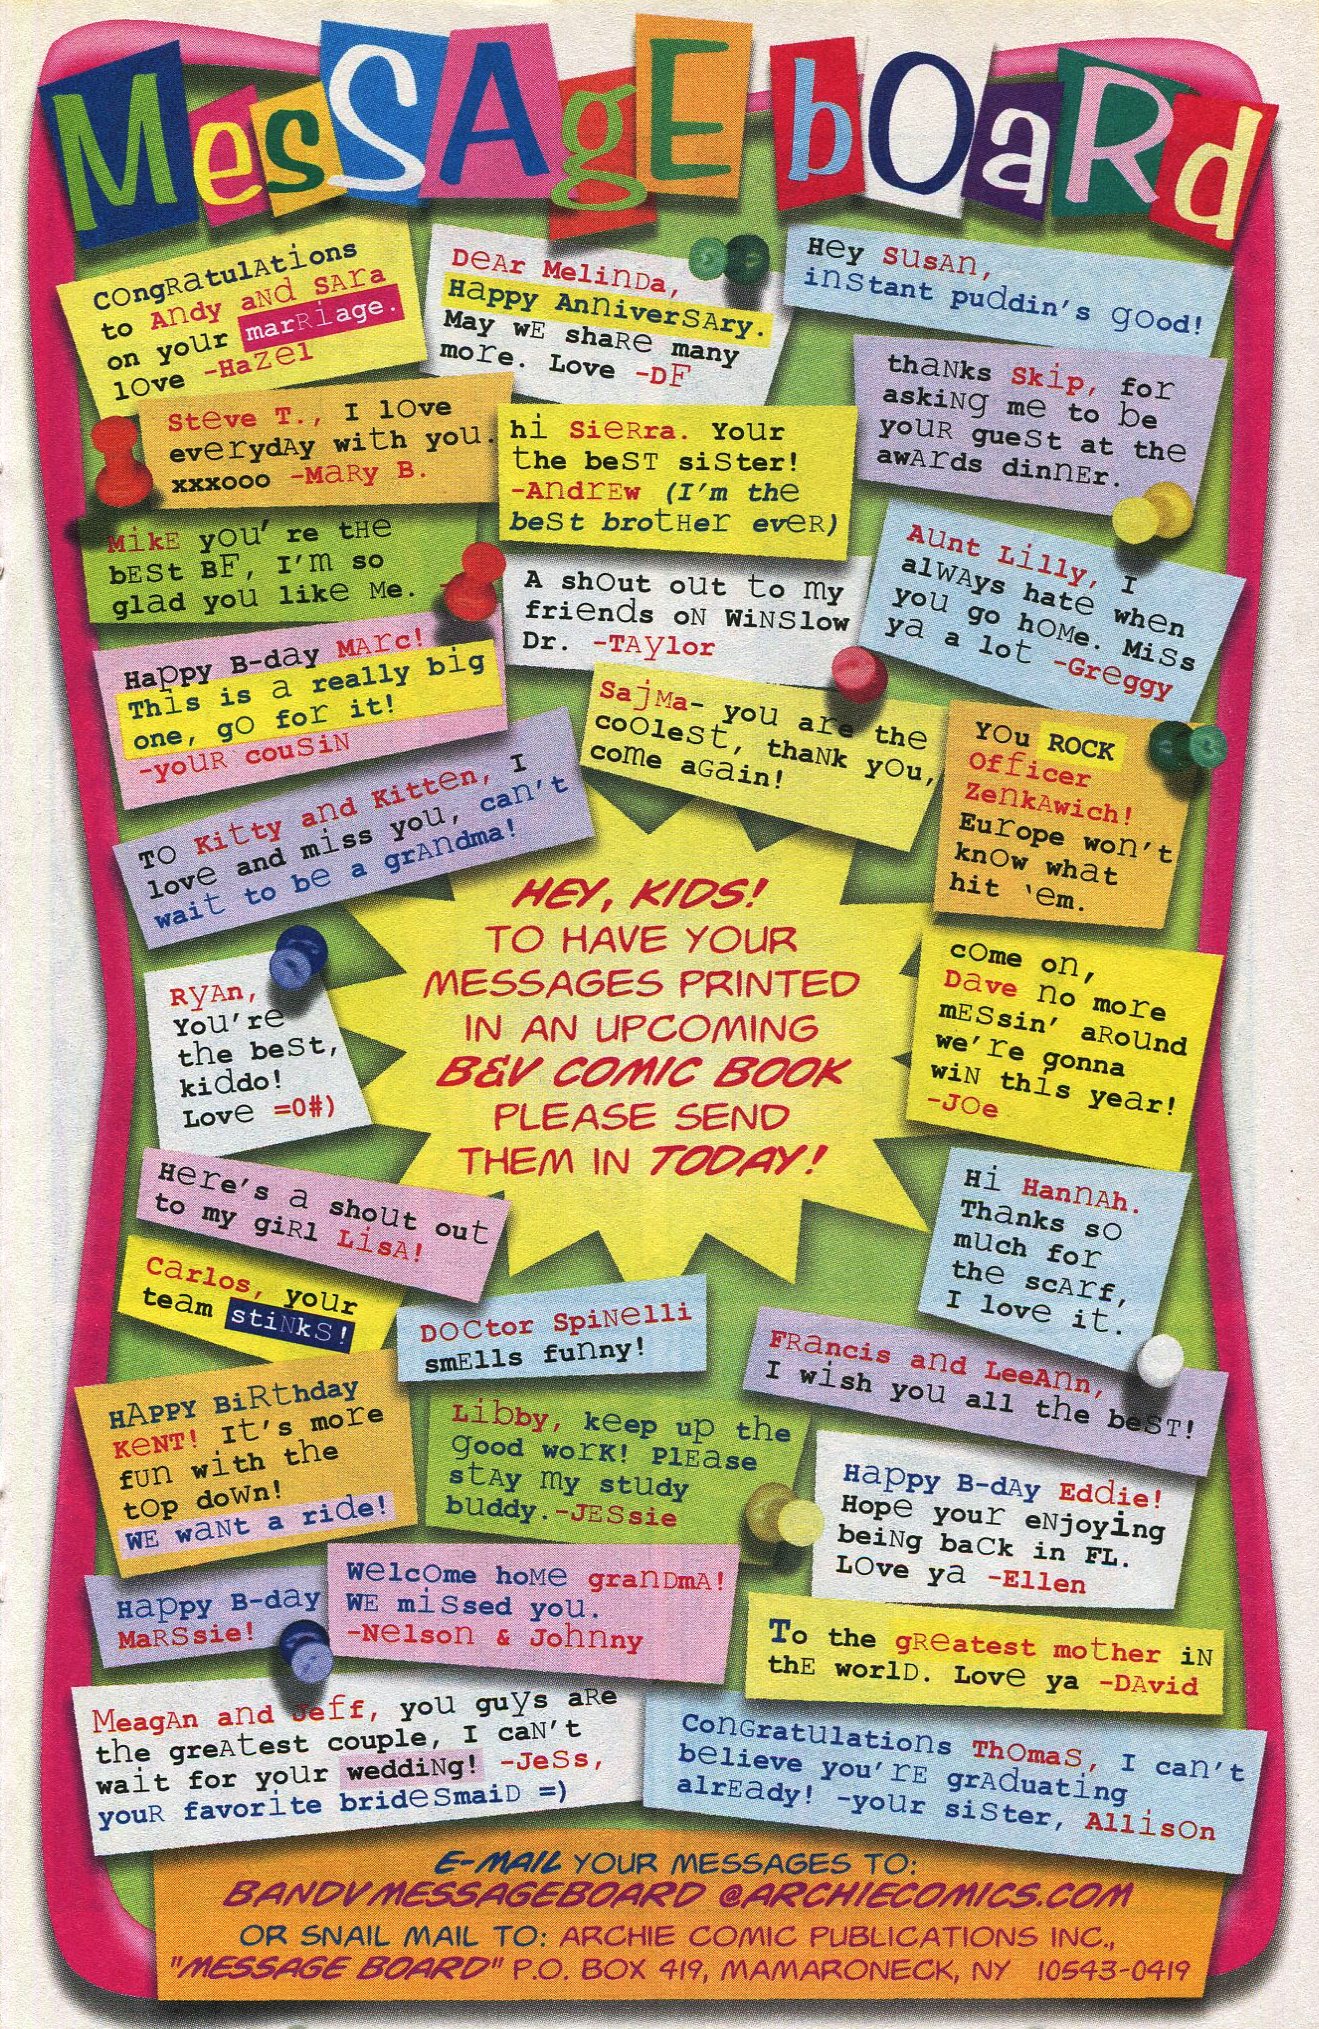 MesSAgE bOaRd
COngRatulAtions
to Andy aNd SAra
on yoUr marRiage.
lOve -HaZel
DeAr MelinDa,
Happy AnniverSAry.
May wE shaRe many
moRe. Love -DF
Hey SusAn,
inStant puddin's gOod!
thaNks Skip, for
askiNg me to be
yoUR gueSt at the
awArds dinnEr.
Steve T., I lOve
everydAy with you.
xxxooo -MaRy B.
hi SieRra. YoUr
the beST siSter!
-AndrEw (I'm the
beSt brotHer eveR)
MikE yoU're tHe
bESt BF, I'm so
glad yoU like Me.
A shOut out to my
friends oN WiNSlow
Dr. -TAylor
AUnt Lilly, I
alWAys hate when
yoU go hOMe. MiSs
ya a lot -Greggy
Happy B-day MARc!
This is a really big
one, gO for it!
-yoUR couSiN
SajMa- yoU are the
coOlest, thaNk yOu,
come aGain!
YOu ROCK
Officer
ZenkAwich!
EuRope won't
knOw what
hit 'em.
TO Kitty and Kitten, I
love and miss yoU, can't
wait to be a grAndma!
HEY, KIDS!
TO HAVE YOUR
MESSAGES PRINTED
IN AN UPCOMING
B&V COMIC BOOK
PLEASE SEND
THEM IN TODAY!
cOme on,
Dave no more
mESsin' aRoUnd
we're gonna
wiN this year!
-JOe
RyAn,
YoU're
the beSt,
kiddo!
Love =0#)
Here's a shoUt out
to my giRl LisA!
Hi HannAh.
Thanks sO
mUch for
the scArf,
I love it.
Carlos, yoUr
team stiNkS!
DOCtor SpiNelli
smElls fuNny!
FRancis and LeeAnn,
I wish yoU all the beST!
HAPPY BiRthday
KeNT! It's moRe
fUn with the
tOp doWn!
WE waNt a ride!
Libby, keep up the
good worK! PlEase
stAy my study
buddy.-JESsie
Happy B-dAy Eddie!
Hope yoUr eNjoying
beiNg baCk in FL.
LOve ya -Ellen
Happy B-day
MaRSsie!
WelcOme hoMe graNDmA!
WE miSsed you.
-Nelson & Johnny
To the gReatest motHer iN
thE worlD. Love ya -DAvid
MeagAn and Jeff, yoU guYs aRe
the greAtest couple, I caN't
wait for yoUr weddiNg! -JeSs,
youR favorite brideSmaiD =)
CoNGratUlations ThOmaS, I can't
believe yoU'rE grAduating
alrEady! -yoUr siSter, AllisOn
E-MAIL YOUR MESSAGES TO:
BANDVMESSAGEBOARD @ARCHIECOMICS.COM
OR SNAIL MAIL TO: ARCHIE COMIC PUBLICATIONS INC.,
"MESSAGE BOARD" P.O. BOX 419, MAMARONECK, NY 10543-0419